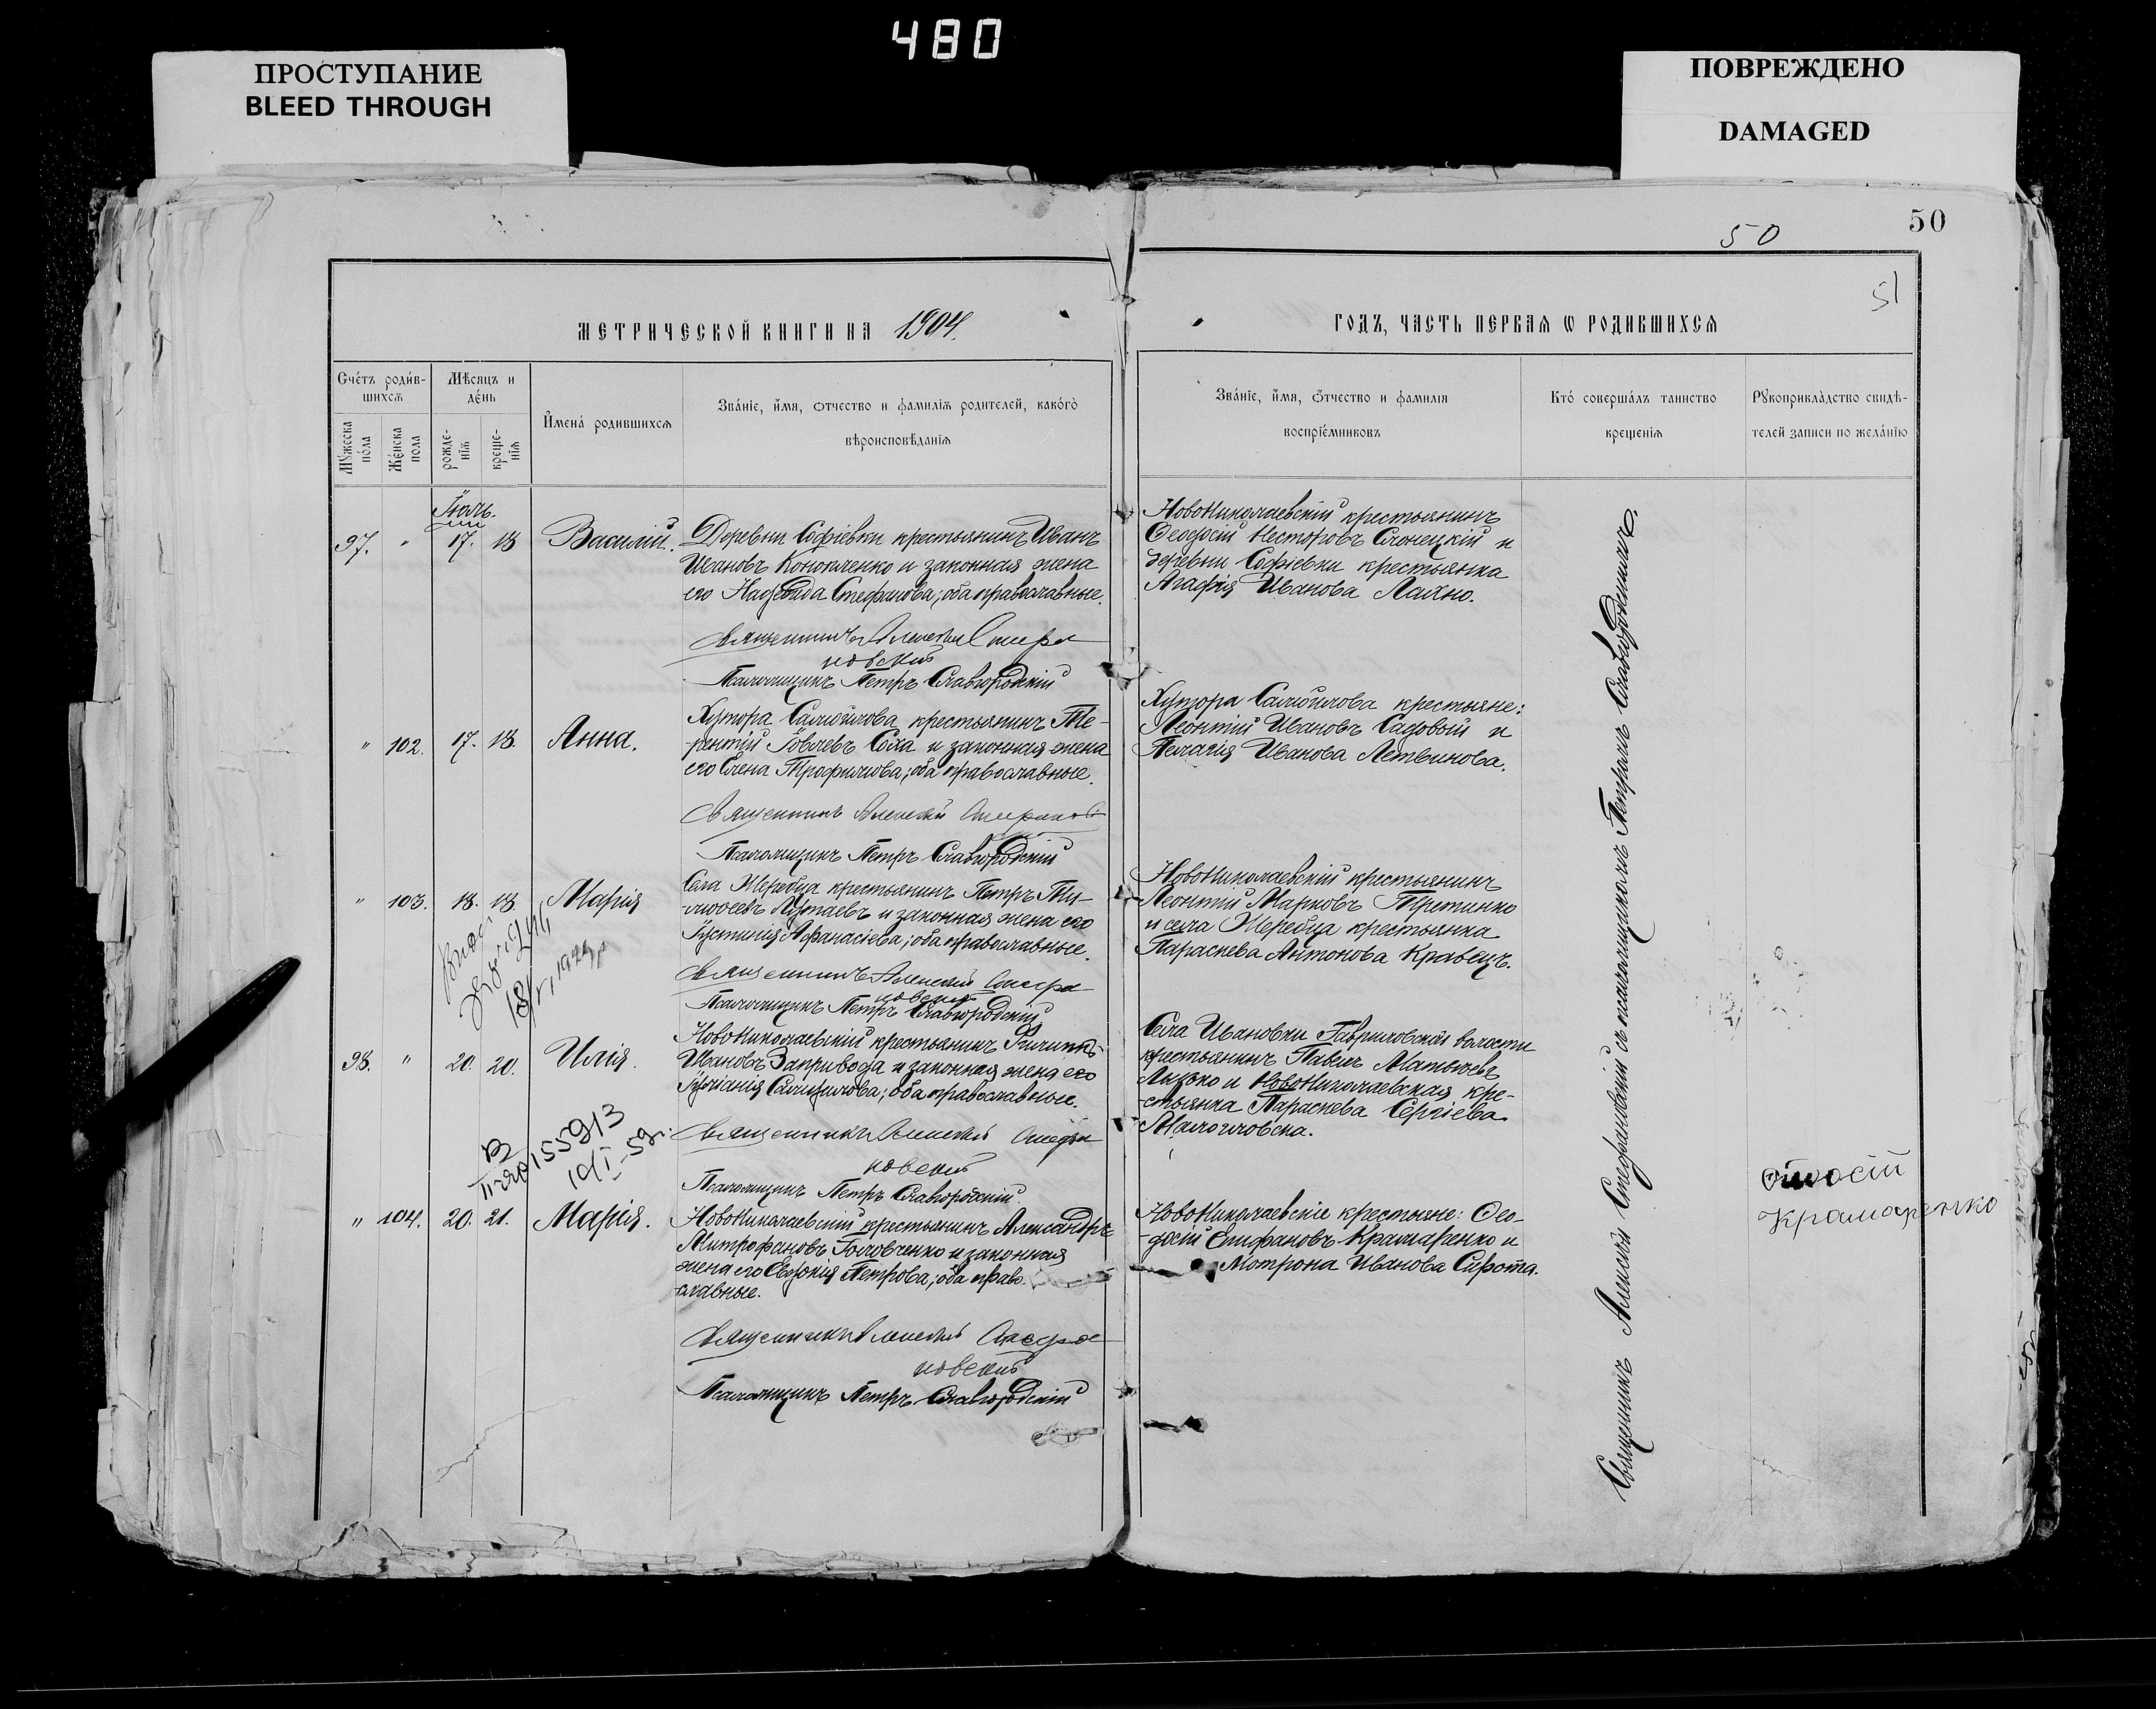 480
ПРОСТУПАНИЕ
BLEED THROUGH
ПОВРЕЖДЕНО
DAMAGED
50
50
51
МЕТРИЧЕСКОЙ КНИГИ НА 1904.
ГОДЪ, ЧАСТЬ ПЕРВАЯ Ѡ РОДИВШИХСЯ
Счетъ родив-
шихся
Мужеска
пола
Женска
пола
Мѣсяцъ и
день
рожде-
нія
креще-
нія
Имена родившихся
Званіе, имя, отчество и фамилія родителей, какого
вѣроисповѣданія
Званіе, имя, отчество и фамилія
воспріемниковъ
Кто совершалъ таинство
крещенія
Рукоприкладство свидѣ-
телей записи по желанію
Іюль.
97. " 17. 18 Василій. Деревни Софіевки крестьянинъ Иванъ
Ивановъ Коноваленко и законная жена
его Надежда Стефанова; оба православные.
Священникъ Алексѣй Стефа
новскій
Псаломщикъ Петръ Славгородскій
НовоНиколаевскій крестьянинъ
Ѳеодосій Несторовъ Слонецкій и
деревни Софіевки крестьянка
Агафія Иванова Лаяно.
" 102. 17. 18. Анна. Хутора Самойлова крестьянинъ Те-
рентій Іовлевъ Соха и законная жена
его Елена Трофимова; оба православные.
Священникъ Алексѣй
Псаломщикъ Петръ Славгородскій
Хутора Самойлова крестьяне:
Леонтій Ивановъ Садовой и
Пелагія Иванова Летвинова.
" 103. 18. 18. Марія Села Жеребца крестьянинъ Петръ Ти-
моѳеевъ и законная жена его
Іустинія Афанасіева; оба православные.
Священникъ Алексѣй Стефа
новскій
Псаломщикъ Петръ Славгородскій
НовоНиколаевскій крестьянинъ
Леонтій Марковъ Третинко
и села Жеребца крестьянка
Параскева Антонова Кравецъ.
98. " 20. 20. Илія. НовоНиколаевскій крестьянинъ Филиппъ
Ивановъ Запривода и законная жена его
Іуліанія оба православные.
Священникъ Алексѣй Стефа
новскій
Псаломщикъ Петръ Славгородскій
Села Ивановки Гавриловской волости
крестьянинъ Павелъ Матѳѣевъ
Лизько и НовоНиколаевская кре-
стьянка Параскева Сергіева
155913
10/I-59г.
" 104. 20. 21. Марія. НовоНиколаевскій крестьянинъ Александръ
Митрофановъ Головченко и законная
жена его Евдокія Петрова; оба право-
славные.
Священникъ Алексѣй Стефа
новскій
Псаломщикъ Петръ Славгородскій
НовоНиколаевскіе крестьяне: Ѳео-
досій Стефановъ Крамаренко и
Мотрона Иванова Сирота.
Крамаренко
Священникъ Алексѣй Стефановскій съ псаломщикомъ Петромъ Славгородскимъ.